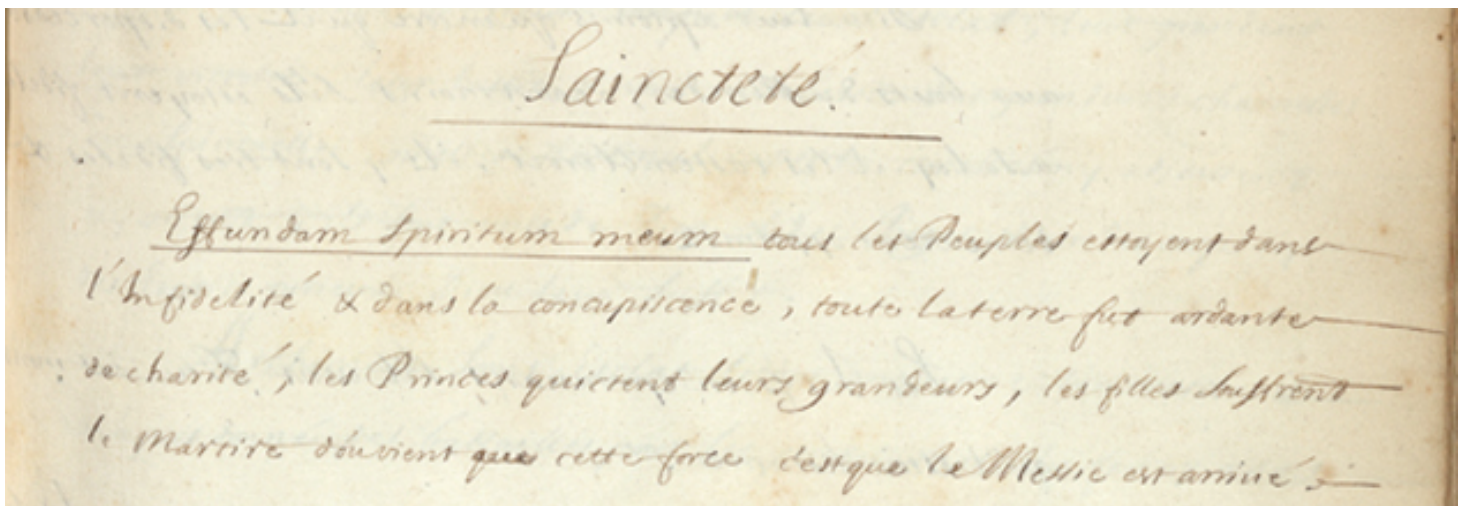 Saincteté.
Effundam spiritum meum tous les Peuples estoyent dans
l'Infidelité & dans la concupiscence, toute la terre fut ardante
de charité, les Princes quictent leurs grandeurs, les filles souffrent
le Martire d'ou vient que cette force c'est que le Messie est arrivé ;